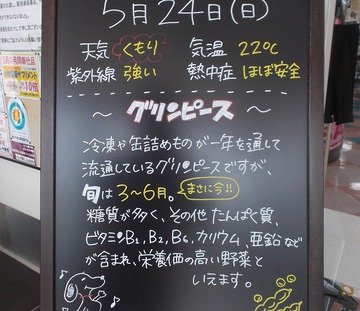 5月24日(日)
天気 くもり 気温 22℃
紫外線 強い 熱中症 ほぼ安全
～グリンピース～
冷凍や缶詰めものが一年を通して
流通しているグリンピースですが、
旬は3～6月。まさに今!!
糖質が多く、その他たんぱく質、
ビタミンB1、B2、B6、カリウム、亜鉛など
が含まれ、栄養価の高い野菜と
いえます。